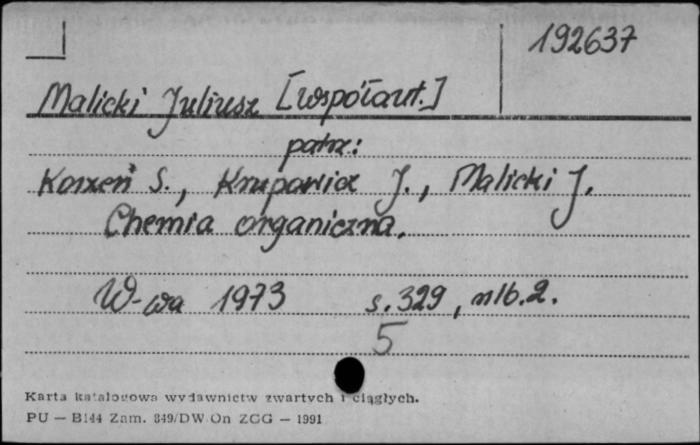 192637
Malicki Juliusz [współaut.]
patrz:
Korzeń S., Krupowicz J., Malicki J.
Chemia organiczna.
W-wa 1973 s. 329, nlb. 2.
5
Karta katalogowa wydawnictw zwartych i ciągłych.
PU — B144 Zam. 849/DW On ZCG — 1991